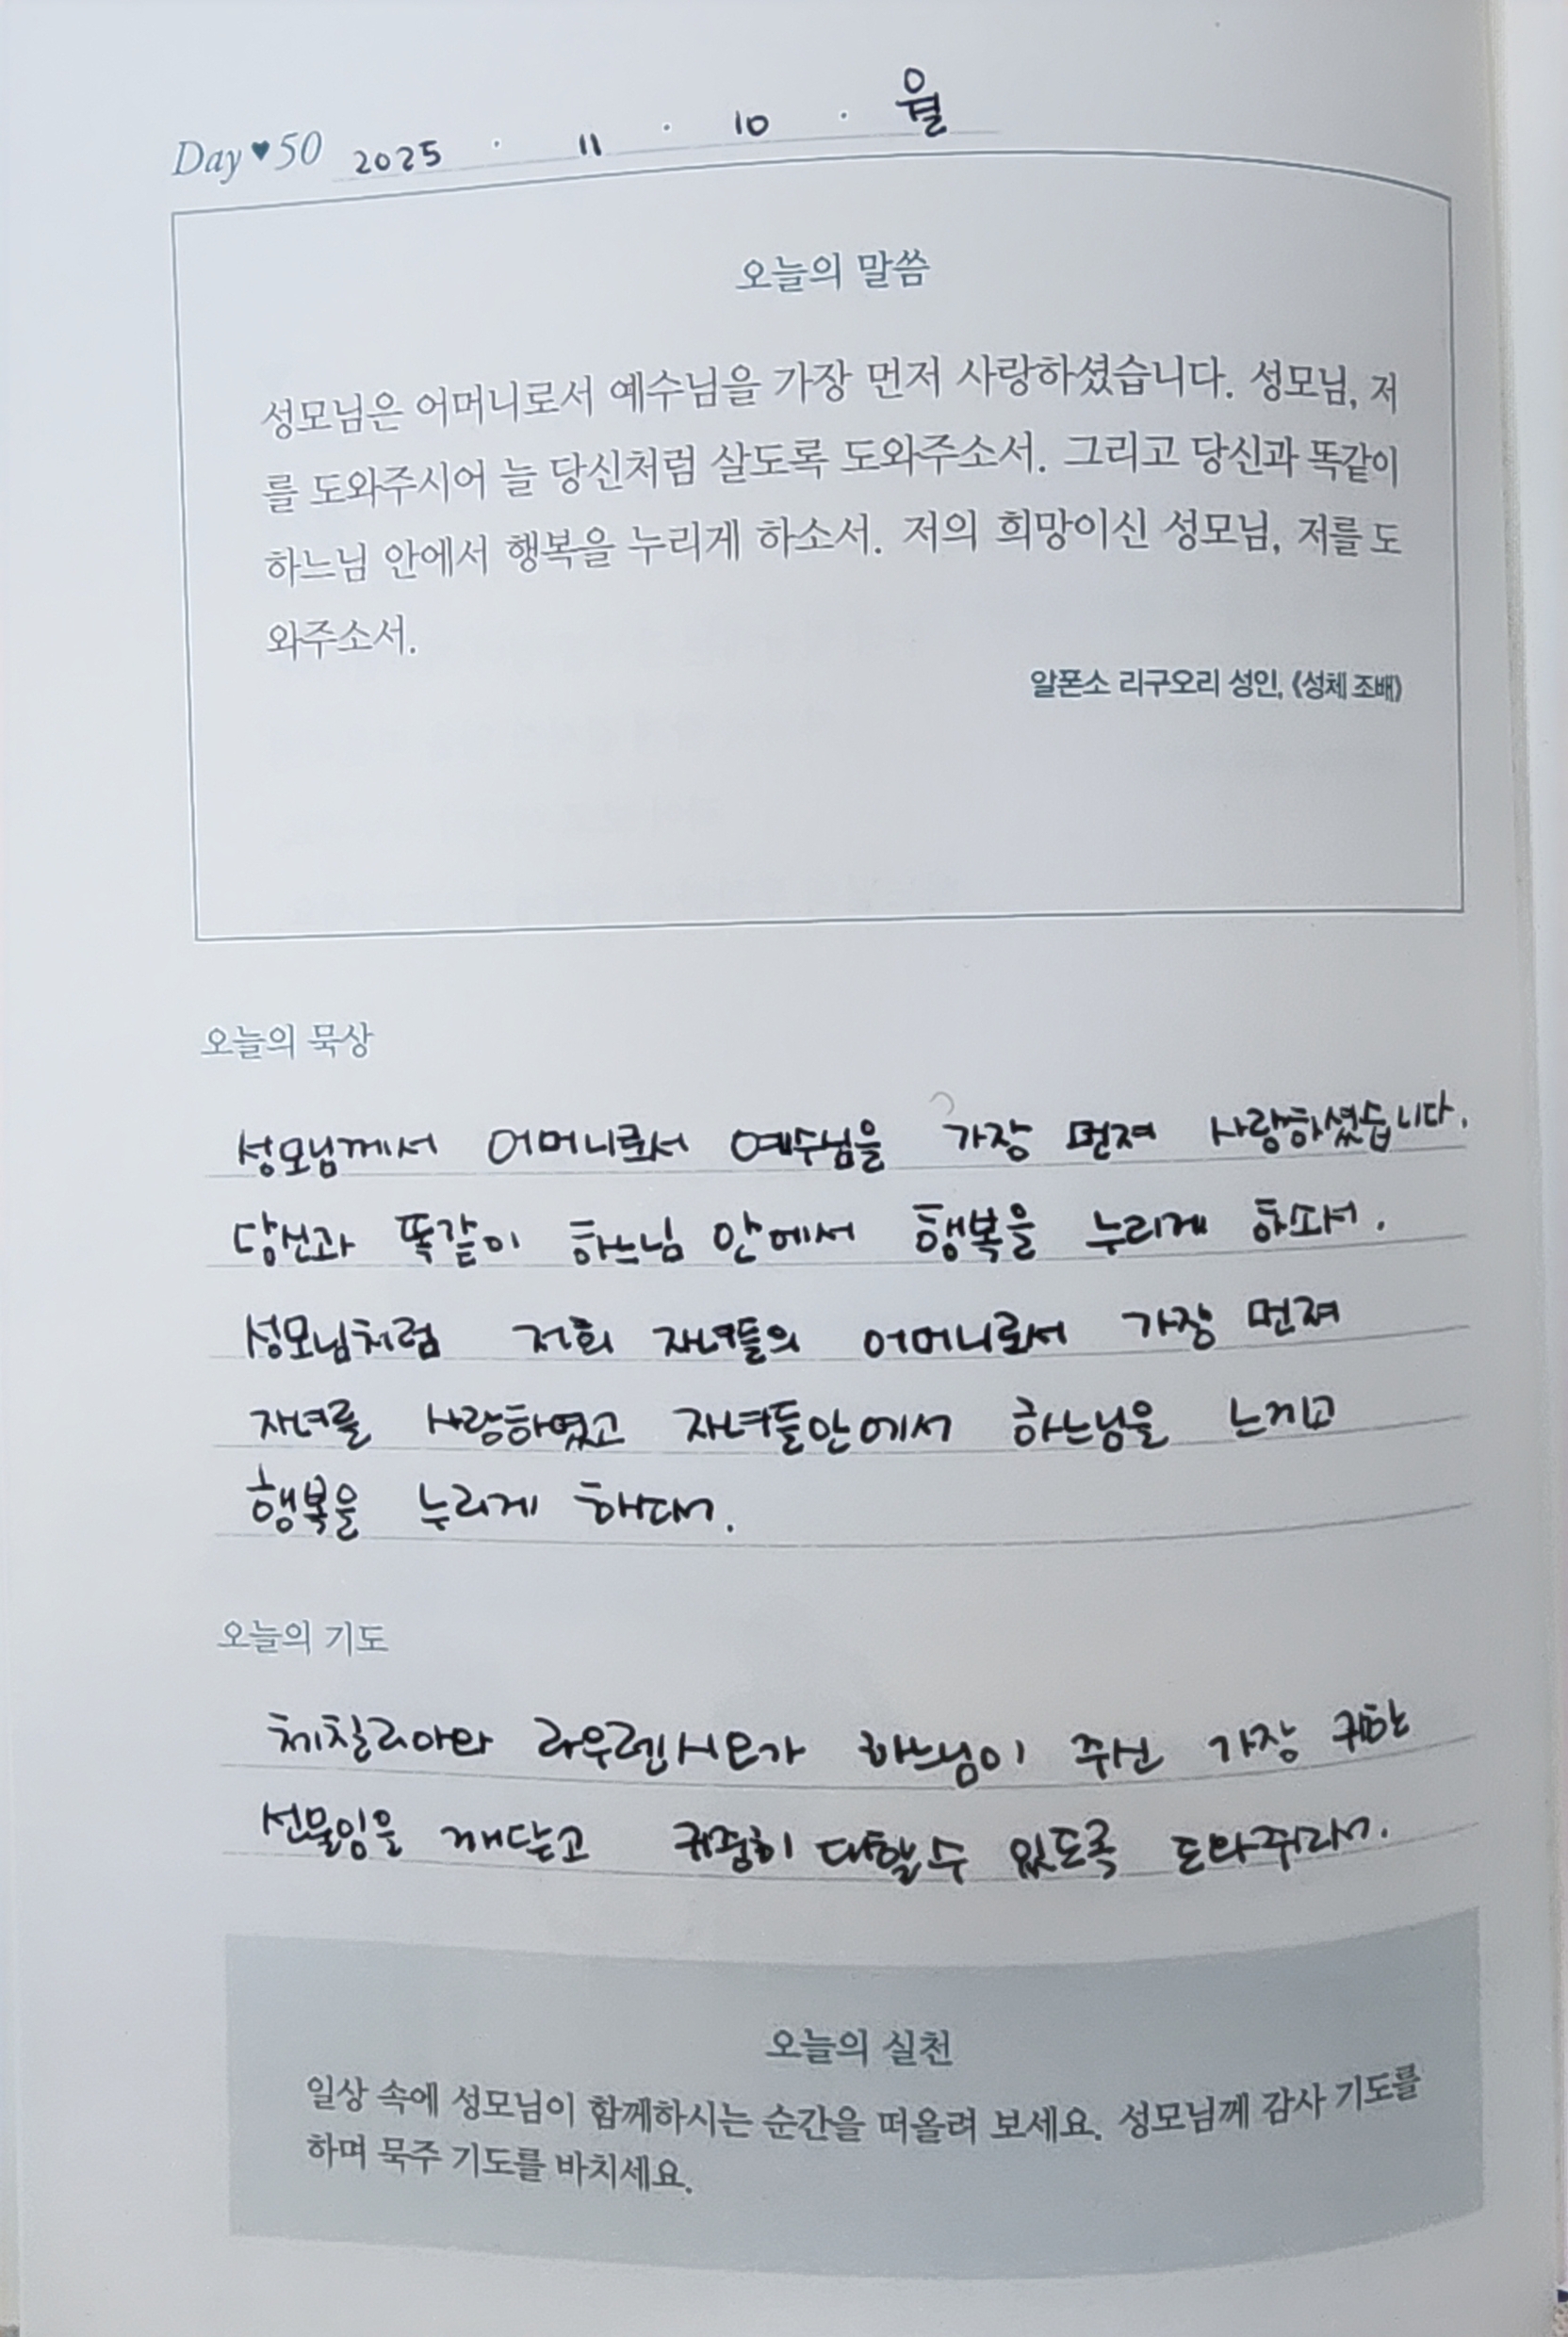 Day ♥ 50 2025 · 11 · 10 · 월
오늘의 말씀
성모님은 어머니로서 예수님을 가장 먼저 사랑하셨습니다. 성모님, 저
를 도와주시어 늘 당신처럼 살도록 도와주소서. 그리고 당신과 똑같이
하느님 안에서 행복을 누리게 하소서. 저의 희망이신 성모님, 저를 도
와주소서.
알폰소 리구오리 성인, 《성체 조배》
오늘의 묵상
성모님께서 어머니로서 예수님을 가장 먼져 사랑하셨습니다.
당신과 똑같이 하느님 안에서 행복을 누리게 하소서.
성모님처럼 저희 자녀들의 어머니로서 가장 먼져
자녀를 사랑하였고 자녀들안에서 하느님을 느끼고
행복을 누리게 하소서.
오늘의 기도
체칠리아와 라우렌시오가 하느님이 주신 가장 귀한
선물임을 깨닫고 귀중히 대할수 있도록 도와주소서.
오늘의 실천
일상 속에 성모님이 함께하시는 순간을 떠올려 보세요. 성모님께 감사 기도를
하며 묵주 기도를 바치세요.